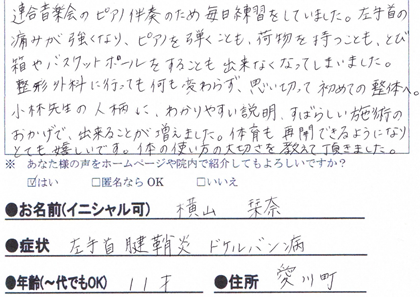 連合音楽会のピアノ伴奏のため毎日練習をしていました。左手首の
痛みが強くなり、ピアノを弾くことも、荷物を持つことも、とび
箱やバスケットボールをすることも出来なくなってしまいました。
整形外科に行っても何も変わらず、思い切って初めての整体へ。
小林先生の人柄に、わかりやすい説明、すばらしい施術の
おかげで、出来ることが増えました。体育も再開できるようになり
とても嬉しいです。体の使い方の大切さを教えて頂きました。
※ あなた様の声をホームページや院内で紹介してもよろしいですか?
☑はい □匿名なら OK □いいえ
●お名前(イニシャル可) 横山 栞奈
●症状 左手首腱鞘炎 ドケルバン病
●年齢(~代でもOK) 11才 ●住所 愛川町